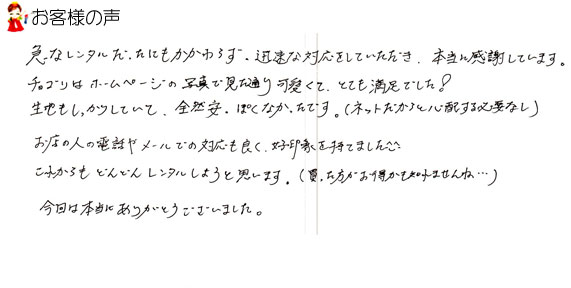 お客様の声
急なレンタルだったにもかかわらず、迅速な対応をしていただき、本当に感謝しています。
チョゴリはホームページの写真で見た通り可愛くて、とても満足でした!
生地もしっかりしていて、全然安っぽくなかったです。(ネットだからと心配する必要なし)
お店の人の電話やメールでの対応も良く、好印象を持てました^^
これからもどんどんレンタルしようと思います。(買った方がお得かも知れませんね…)
今回は本当にありがとうございました。